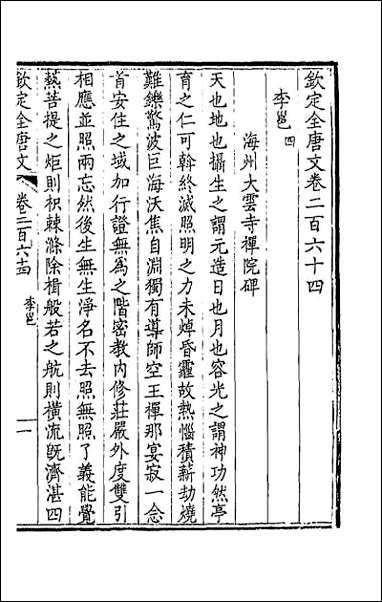 欽定全唐文卷二百六十四
李邕四
海州大雲寺禪院碑
天也地也攝生之謂元造日也月也容光之謂神功然亭
育之仁可斡終滅照明之力未焯昏霾故熱惱積薪劫燒
難鑠驚波巨海沃焦自淵獨有導師空王禪那宴寂一念
首安住之域加行證無為之階密教內修莊嚴外度雙引
相應並照兩忘然後生無生淨名不去照無照了義能覺
爇菩提之炬則枳棘滌除楫般若之航則橫流旣濟湛四
欽定全唐文 卷二百六十四 李邕 一